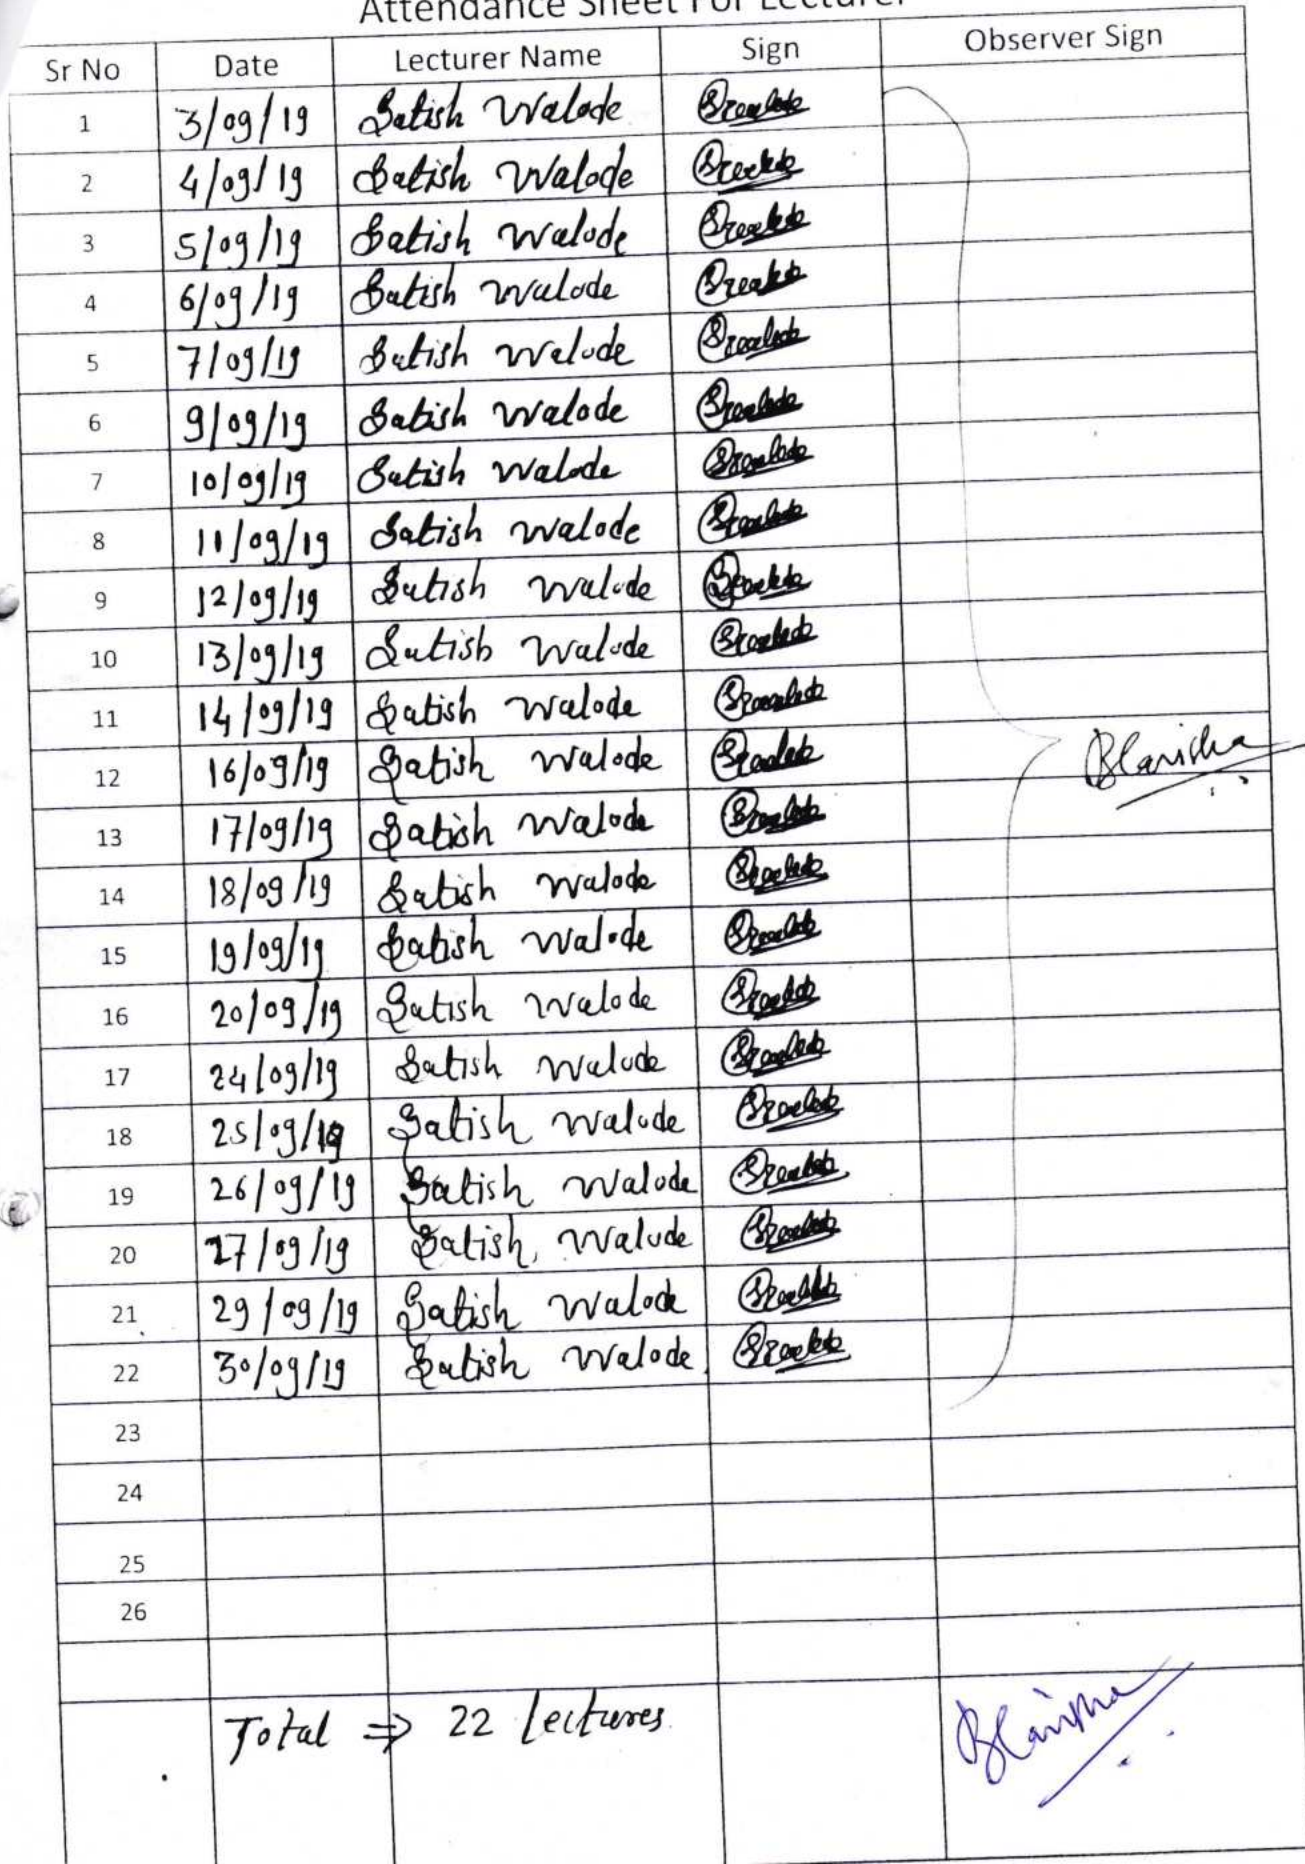 Attendance Sheet For Lecturer
Sr No Date Lecturer Name Sign Observer Sign
1 3/09/19 Satish Walode
2 4/09/19 Satish Walode
3 5/09/19 Satish Walode
4 6/09/19 Satish Walode
5 7/09/19 Satish Walode
6 9/09/19 Satish Walode
7 10/09/19 Satish Walode
8 11/09/19 Satish Walode
9 12/09/19 Satish Walode
10 13/09/19 Satish Walode
11 14/09/19 Satish Walode
12 16/09/19 Satish Walode
13 17/09/19 Satish Walode
14 18/09/19 Satish Walode
15 19/09/19 Satish Walode
16 20/09/19 Satish Walode
17 24/09/19 Satish Walode
18 25/09/19 Satish Walode
19 26/09/19 Satish Walode
20 27/09/19 Satish Walode
21 29/09/19 Satish Walode
22 30/09/19 Satish Walode
23
24
25
26
Total ⇒ 22 lectures